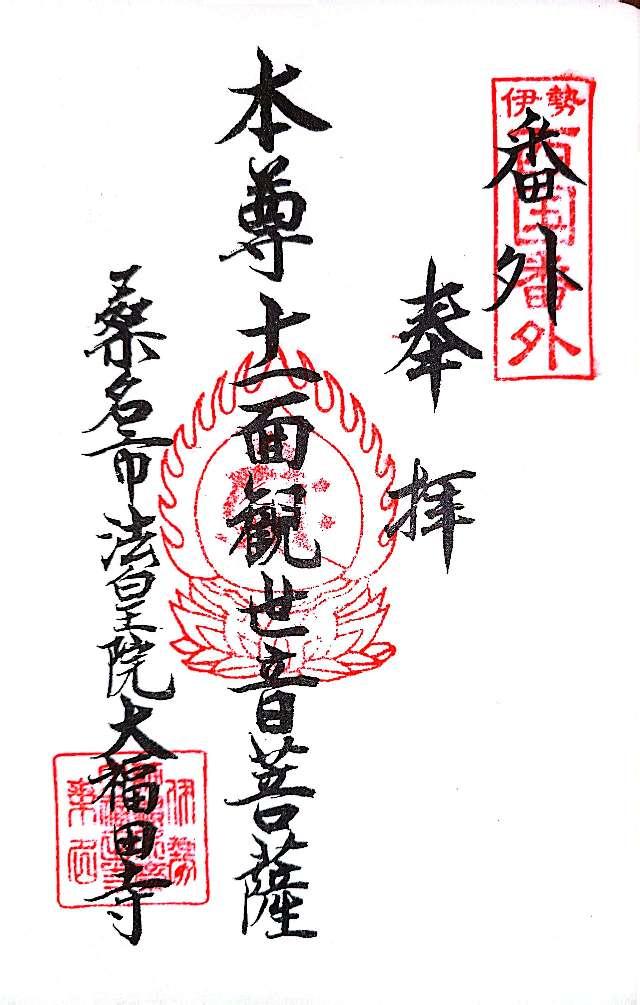 番外
伊勢
西国番外
奉拝
本尊十一面観世音菩薩
桑名市法皇院大福田寺
伊勢
桑名